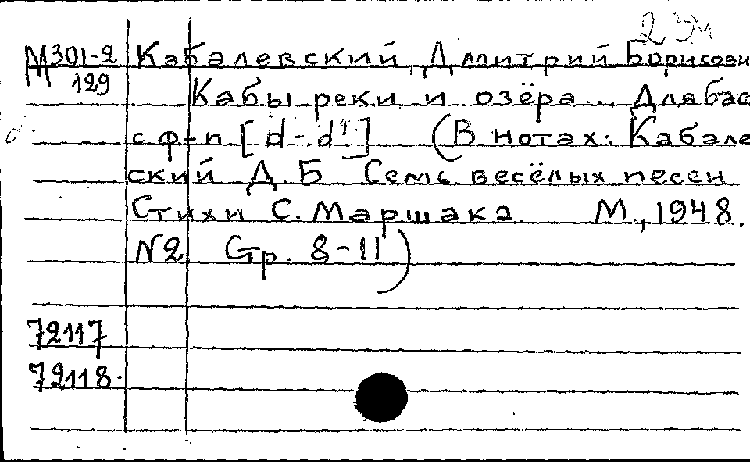 2 ЭМ
М301-2 Кабалевский, Дмитрий Борисови
129 Кабы реки и озёра... Для бас
с ф-п [d-d¹] (В нотах: Кабале
ский Д.Б Семь весёлых песен
Стихи С. Маршака. М., 1948.
N2 Стр. 8-11)
72117
72118.